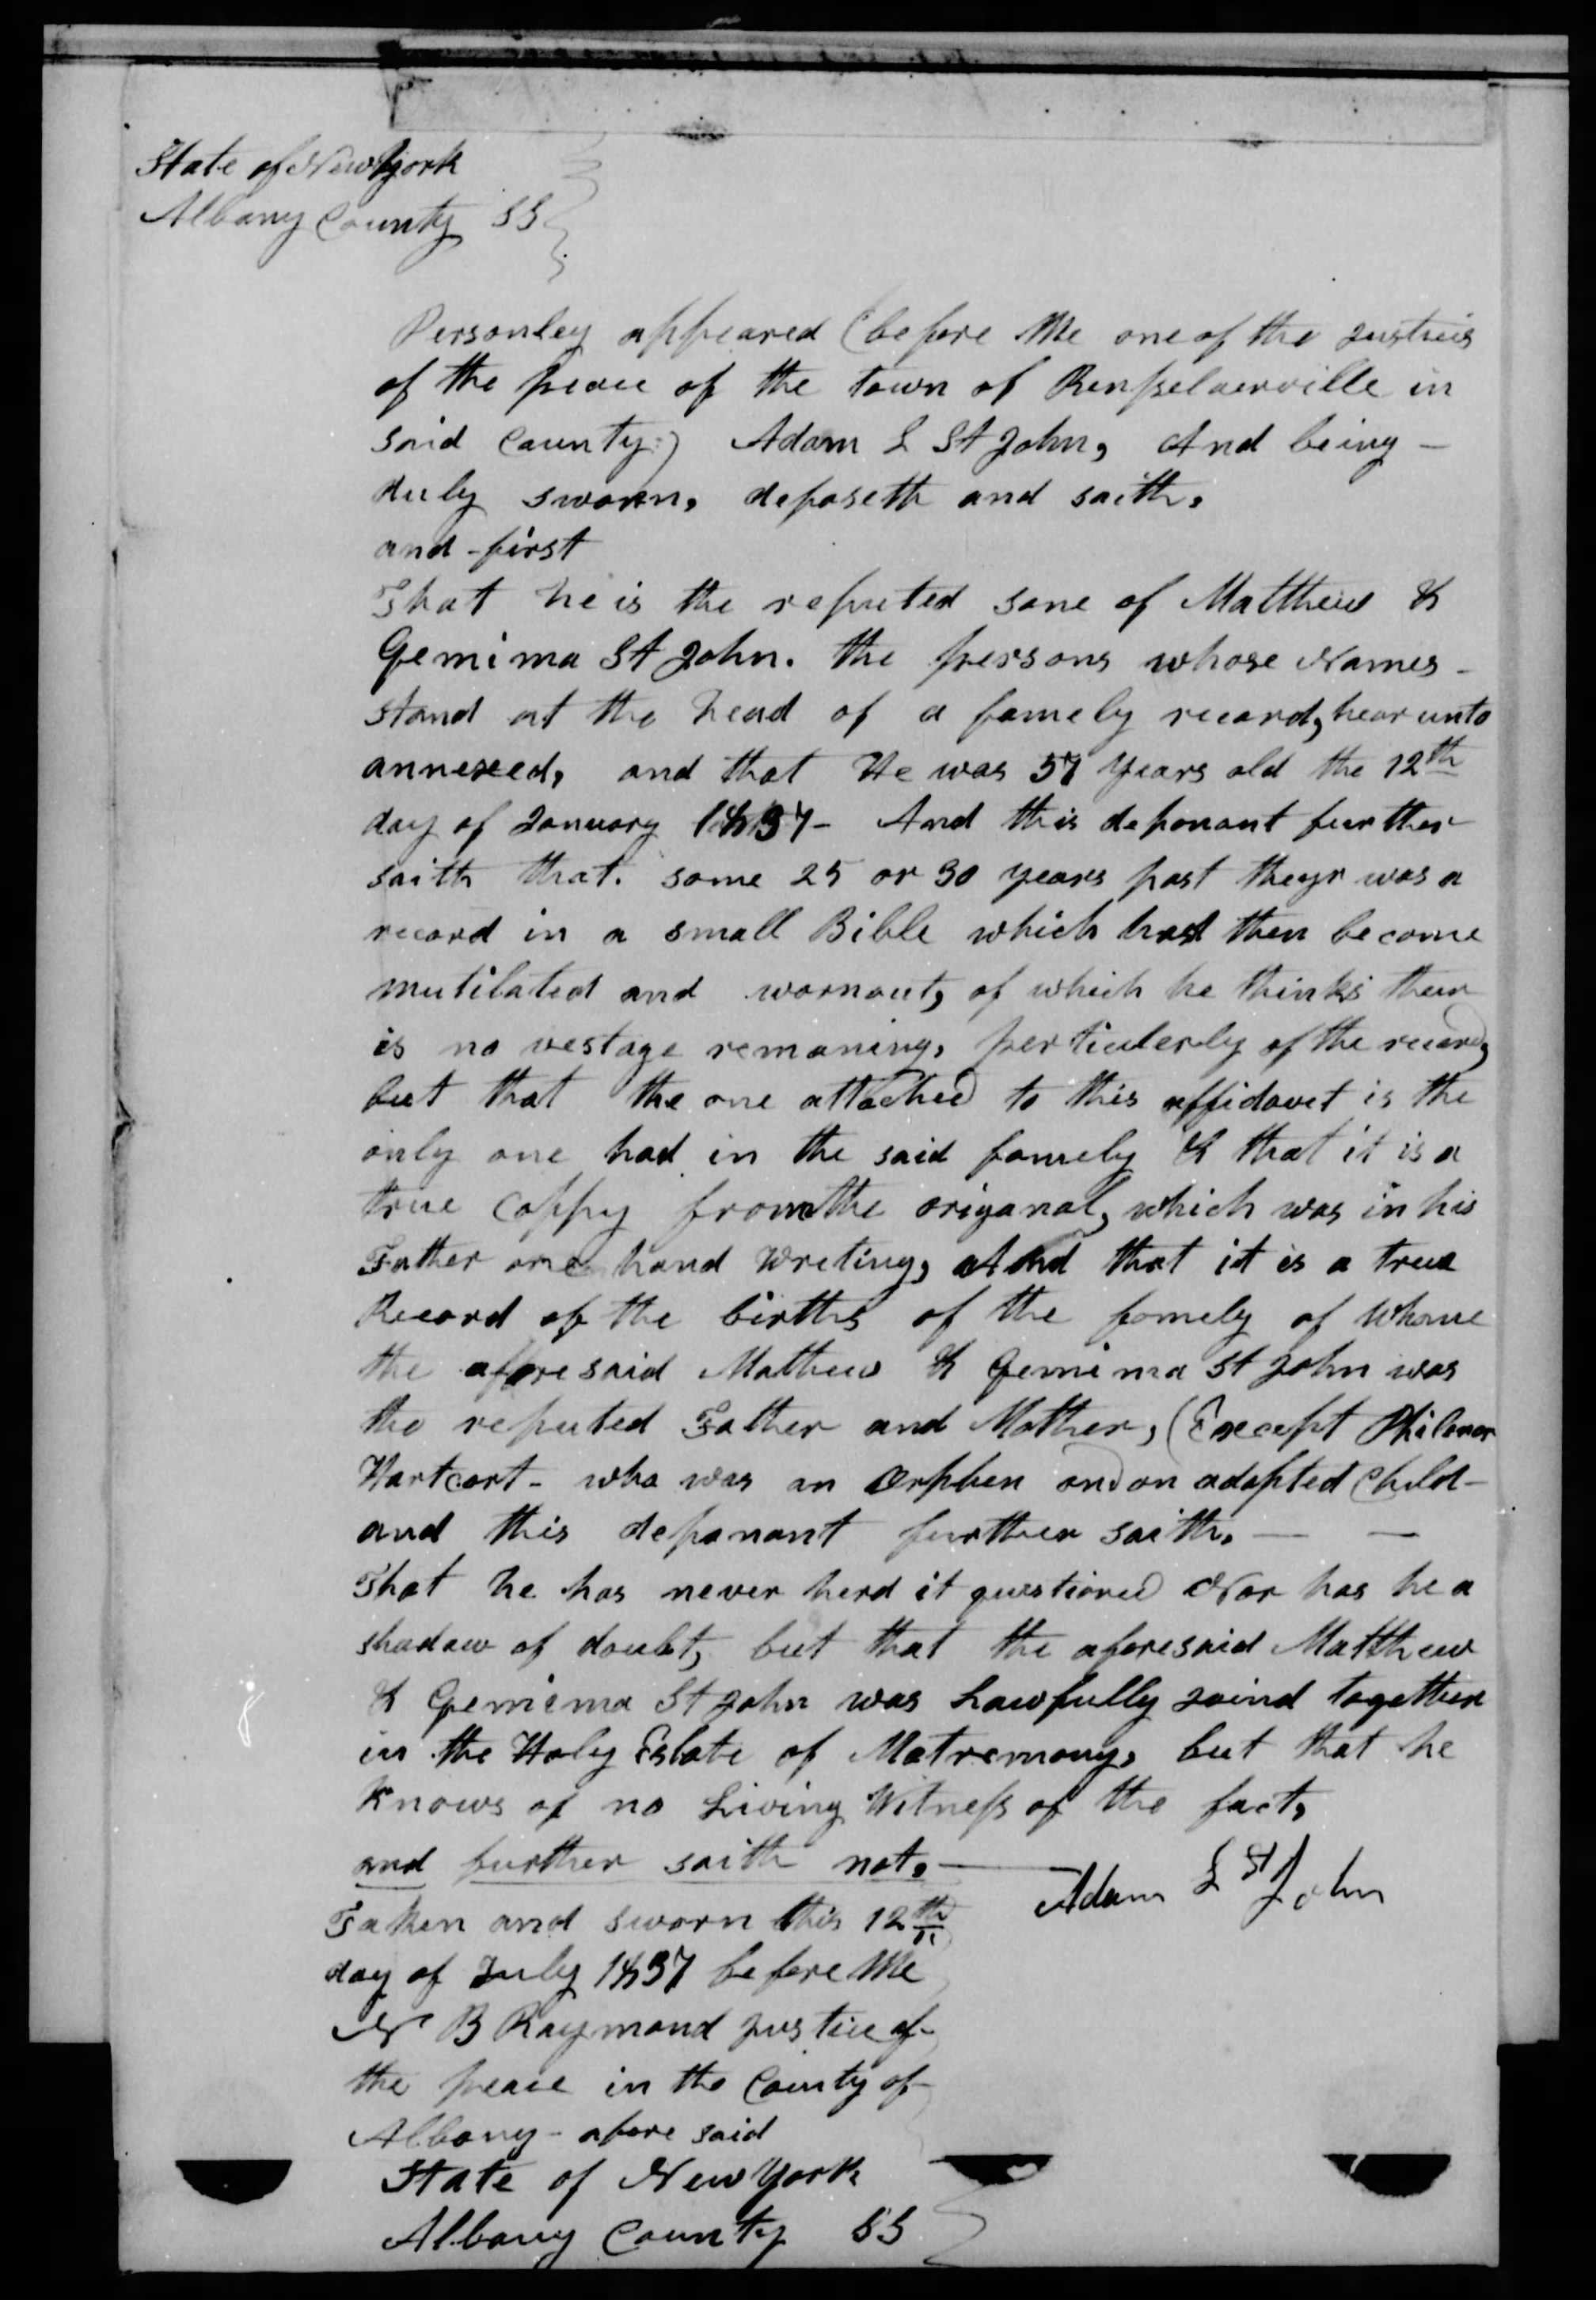 State of New York
Albany County SS
Personley appeared (before Me one of the Justices
of the peace of the town of Rensselaerville in
said County) Adam L St John, And being -
duly sworn, deposeth and saith,
and first
That he is the reputed sone of Matthew &
Gemima St John. the persons whose Names -
stand at the head of a famely record, hearunto
annexed, and that He was 57 years old the 12th
day of January 1837 - And this deponant further
saith that. some 25 or 30 years past theyr was a
record in a small Bible which had then become
mutilated and wornout, of which he thinks thear
is no vestage remaning, perticulerly of the record,
but that the one attached to this affidavet is the
only one had in the said famely & that it is a
true Coppy from the origanal, which was in his
Father one hand Writing, And that it is a true
Record of the births of the famely of whome
the aforesaid Mathew & Gemima St John was
the reputed Father and Mother, (Except Philenor
Hartcort - who was an Orphen and an adopted Child -
and this deponant further saith, — —
That he has never herd it questioned Nor has he a
shadow of doubt, but that the aforesaid Matthew
& Gemima St John was Lawfully Joind together
in the Holy Estate of Matremony, but that he
Knows of no Living Witness of the fact,
and further saith not, —
Adam L St John
Taken and sworn this 12th
day of July 1837 before Me
N B Raymond Justice of
the peace in the County of
Albany - afore said
State of New York
Albany County SS